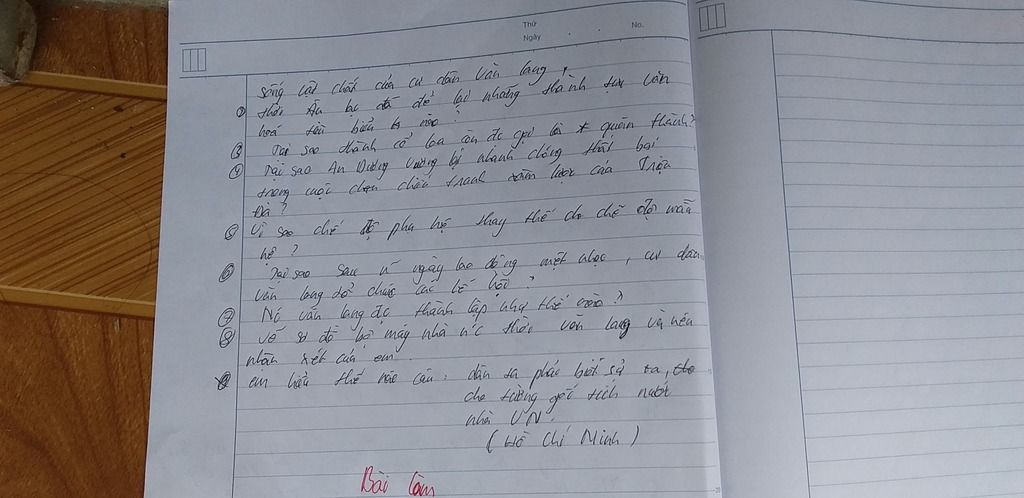 Thứ
No.
Ngày
sống vật chất của cư dân Văn Lang.
② thời Âu Lạc đã để lại những thành tựu văn
hoá tiêu biểu nào?
③ Tại sao thành cổ loa còn đc gọi là quân thành?
④ Tại sao An Dương Vương lại nhanh chóng thất bại
trong cuộc chiến tranh xâm lược của Triệu
Đà?
⑤ Vì sao chế độ phụ hệ thay thế cho chế độ mẫu
hệ?
⑥ Tại sao sau n ngày lao động mệt nhọc, cư dân
văn lang tổ chức các lễ hội?
⑦ Nc văn lang đc thành lập như thế nào?
⑧ vẽ sơ đồ bộ máy nhà nc thời văn lang và nêu
nhận xét của em.
⑨ em hiểu thế nào câu: dân ta phải biết sử ta,
cho tường gốc tích nước
nhà VN.
(Hồ Chí Minh)
Bài làm